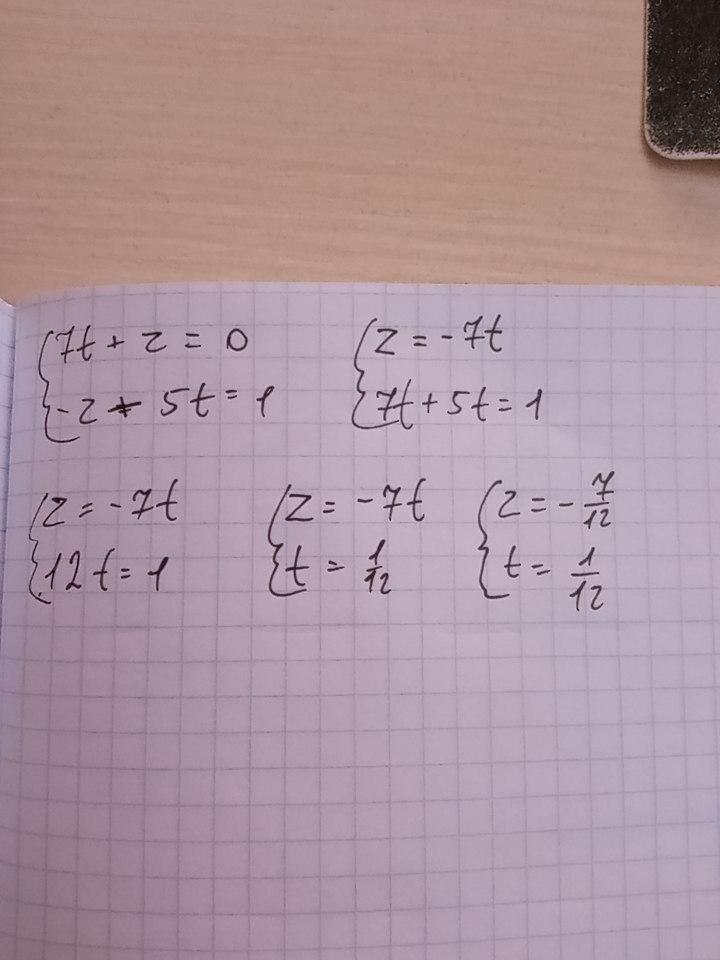 {7t + z = 0
{-z + 5t = 1
{z = -7t
{7t + 5t = 1
{z = -7t
{12t = 1
{z = -7t
{t = 1/12
{z = -7/12
{t = 1/12